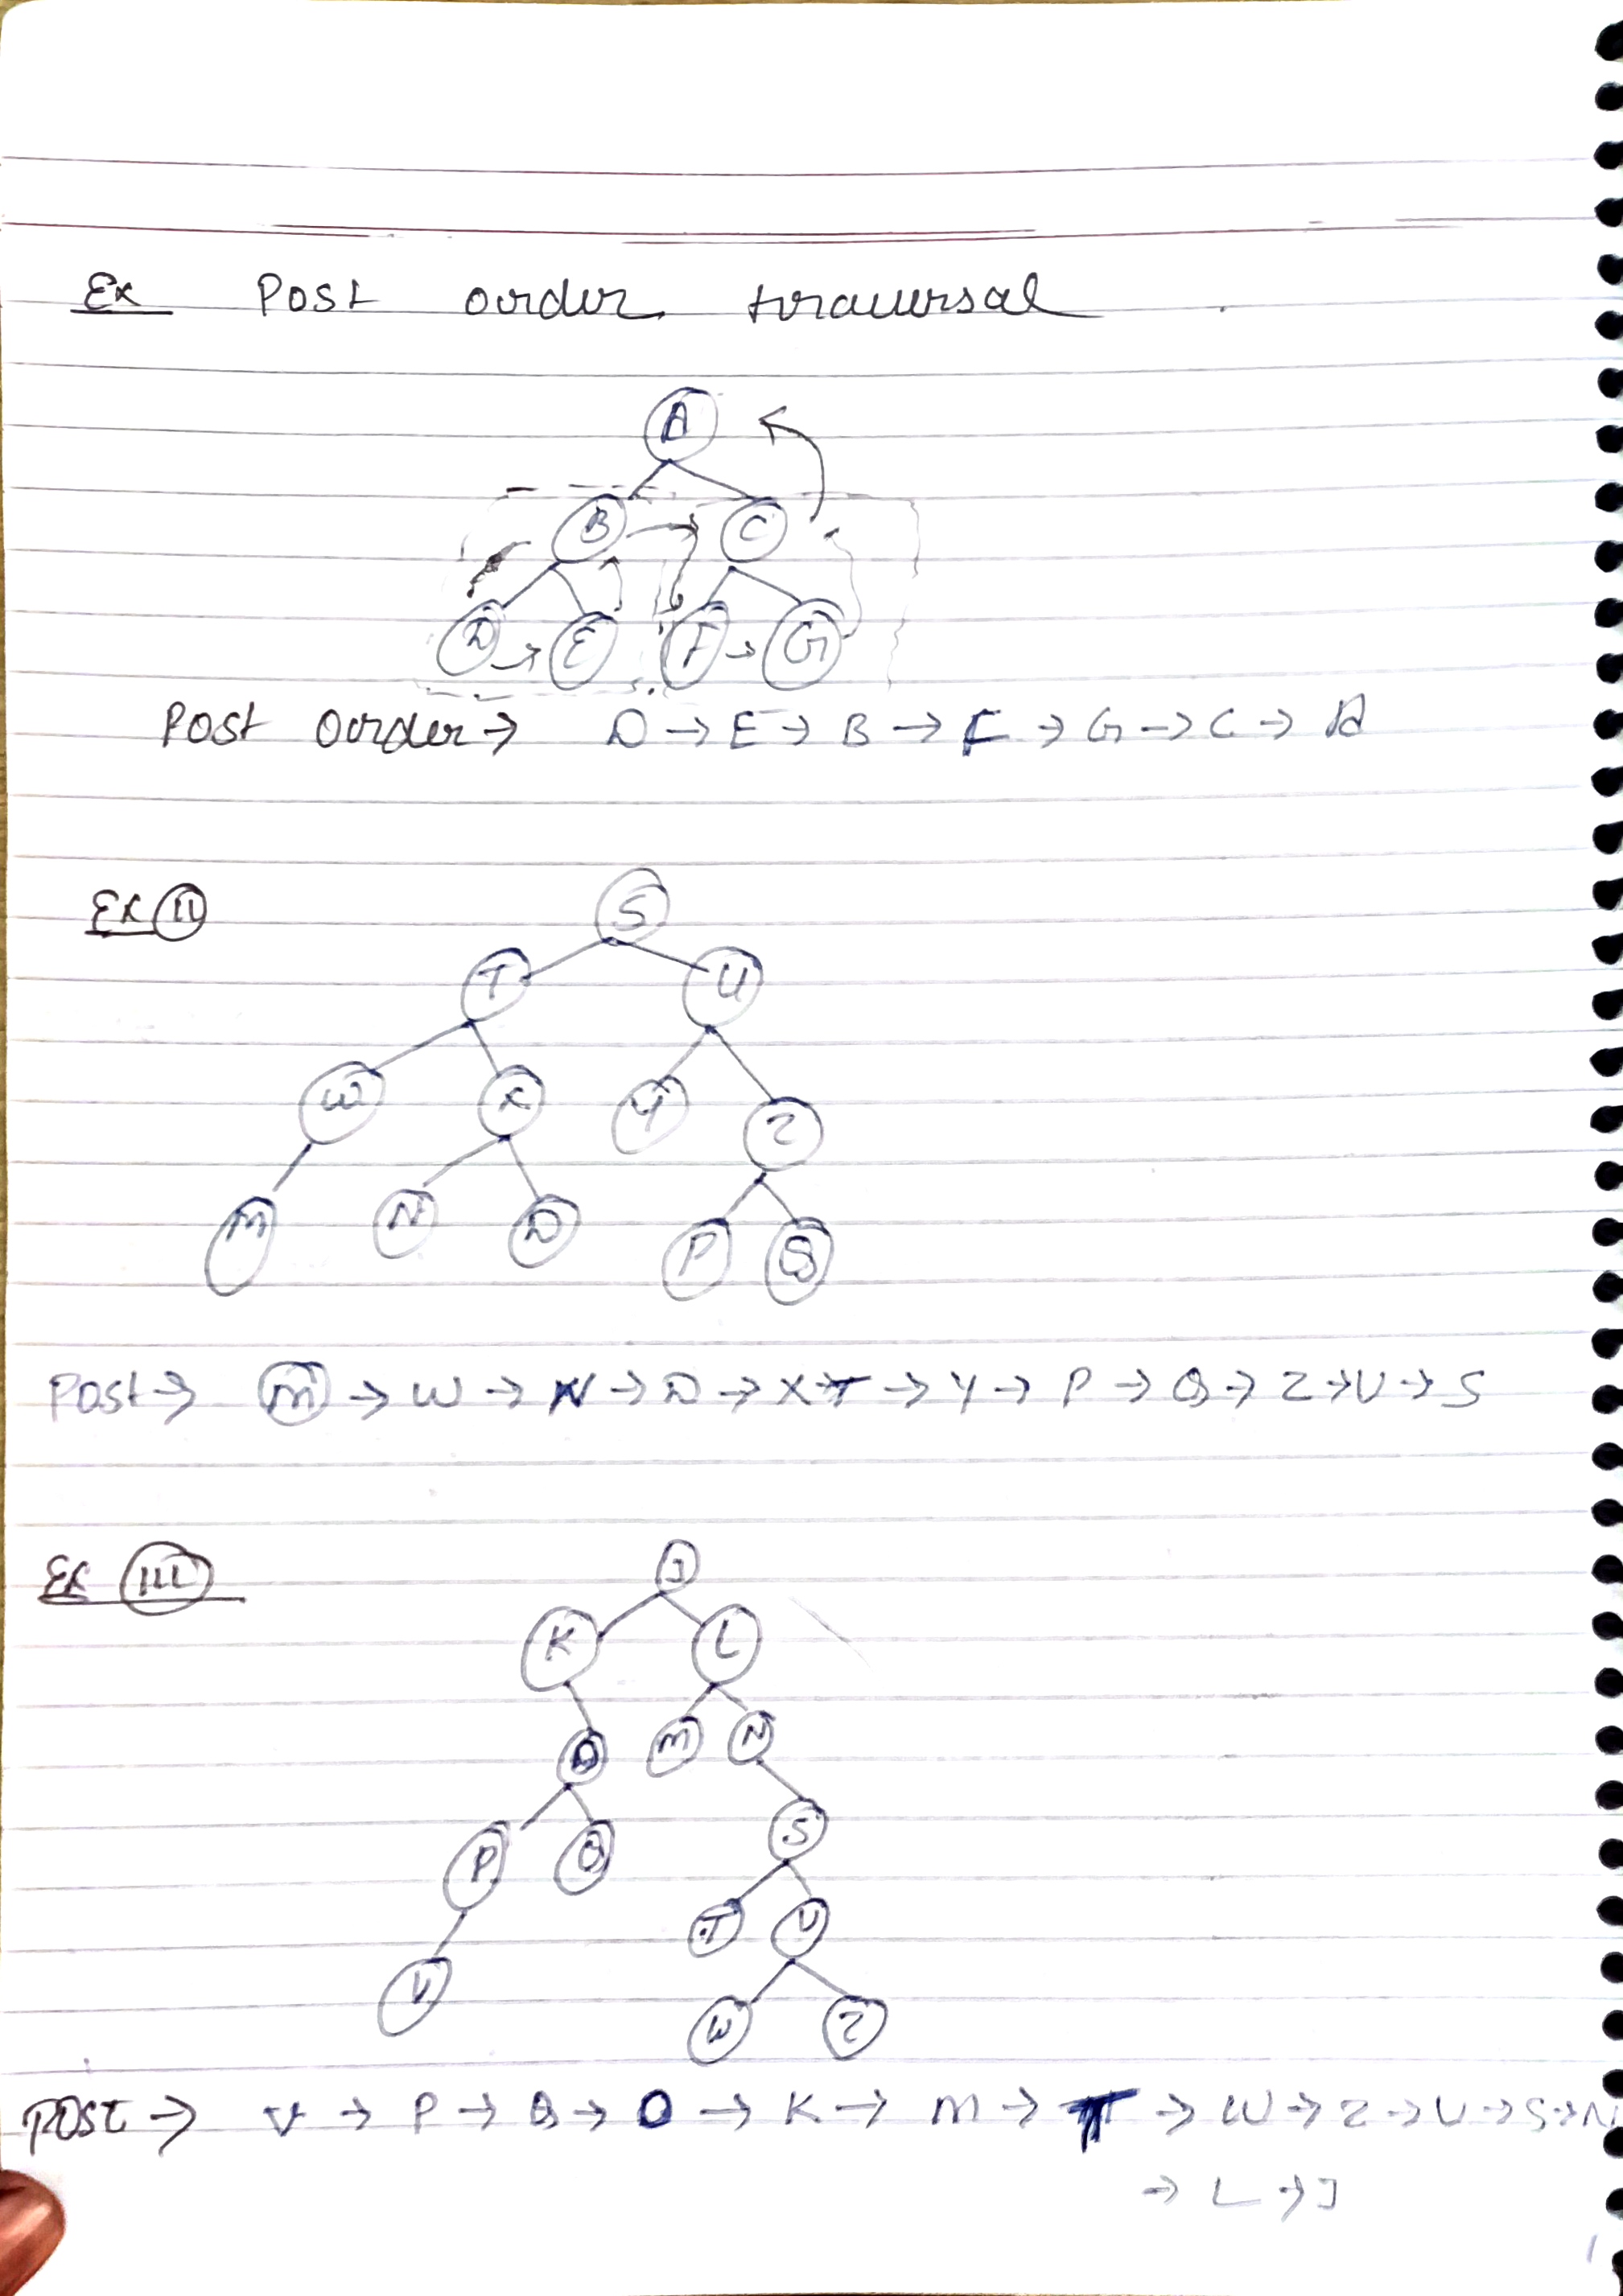 Ex Post order traversal
A
B C
D E F G
Post Order → D → E → B → F → G → C → A
Ex II
S
T U
W X Y Z
M N D P Q
Post → M → W → N → D → X → T → Y → P → Q → Z → U → S
Ex III
J
K L
O M N
P Q S
V T U
W Z
POST → V → P → Q → O → K → M → T → W → Z → U → S → N
→ L → J